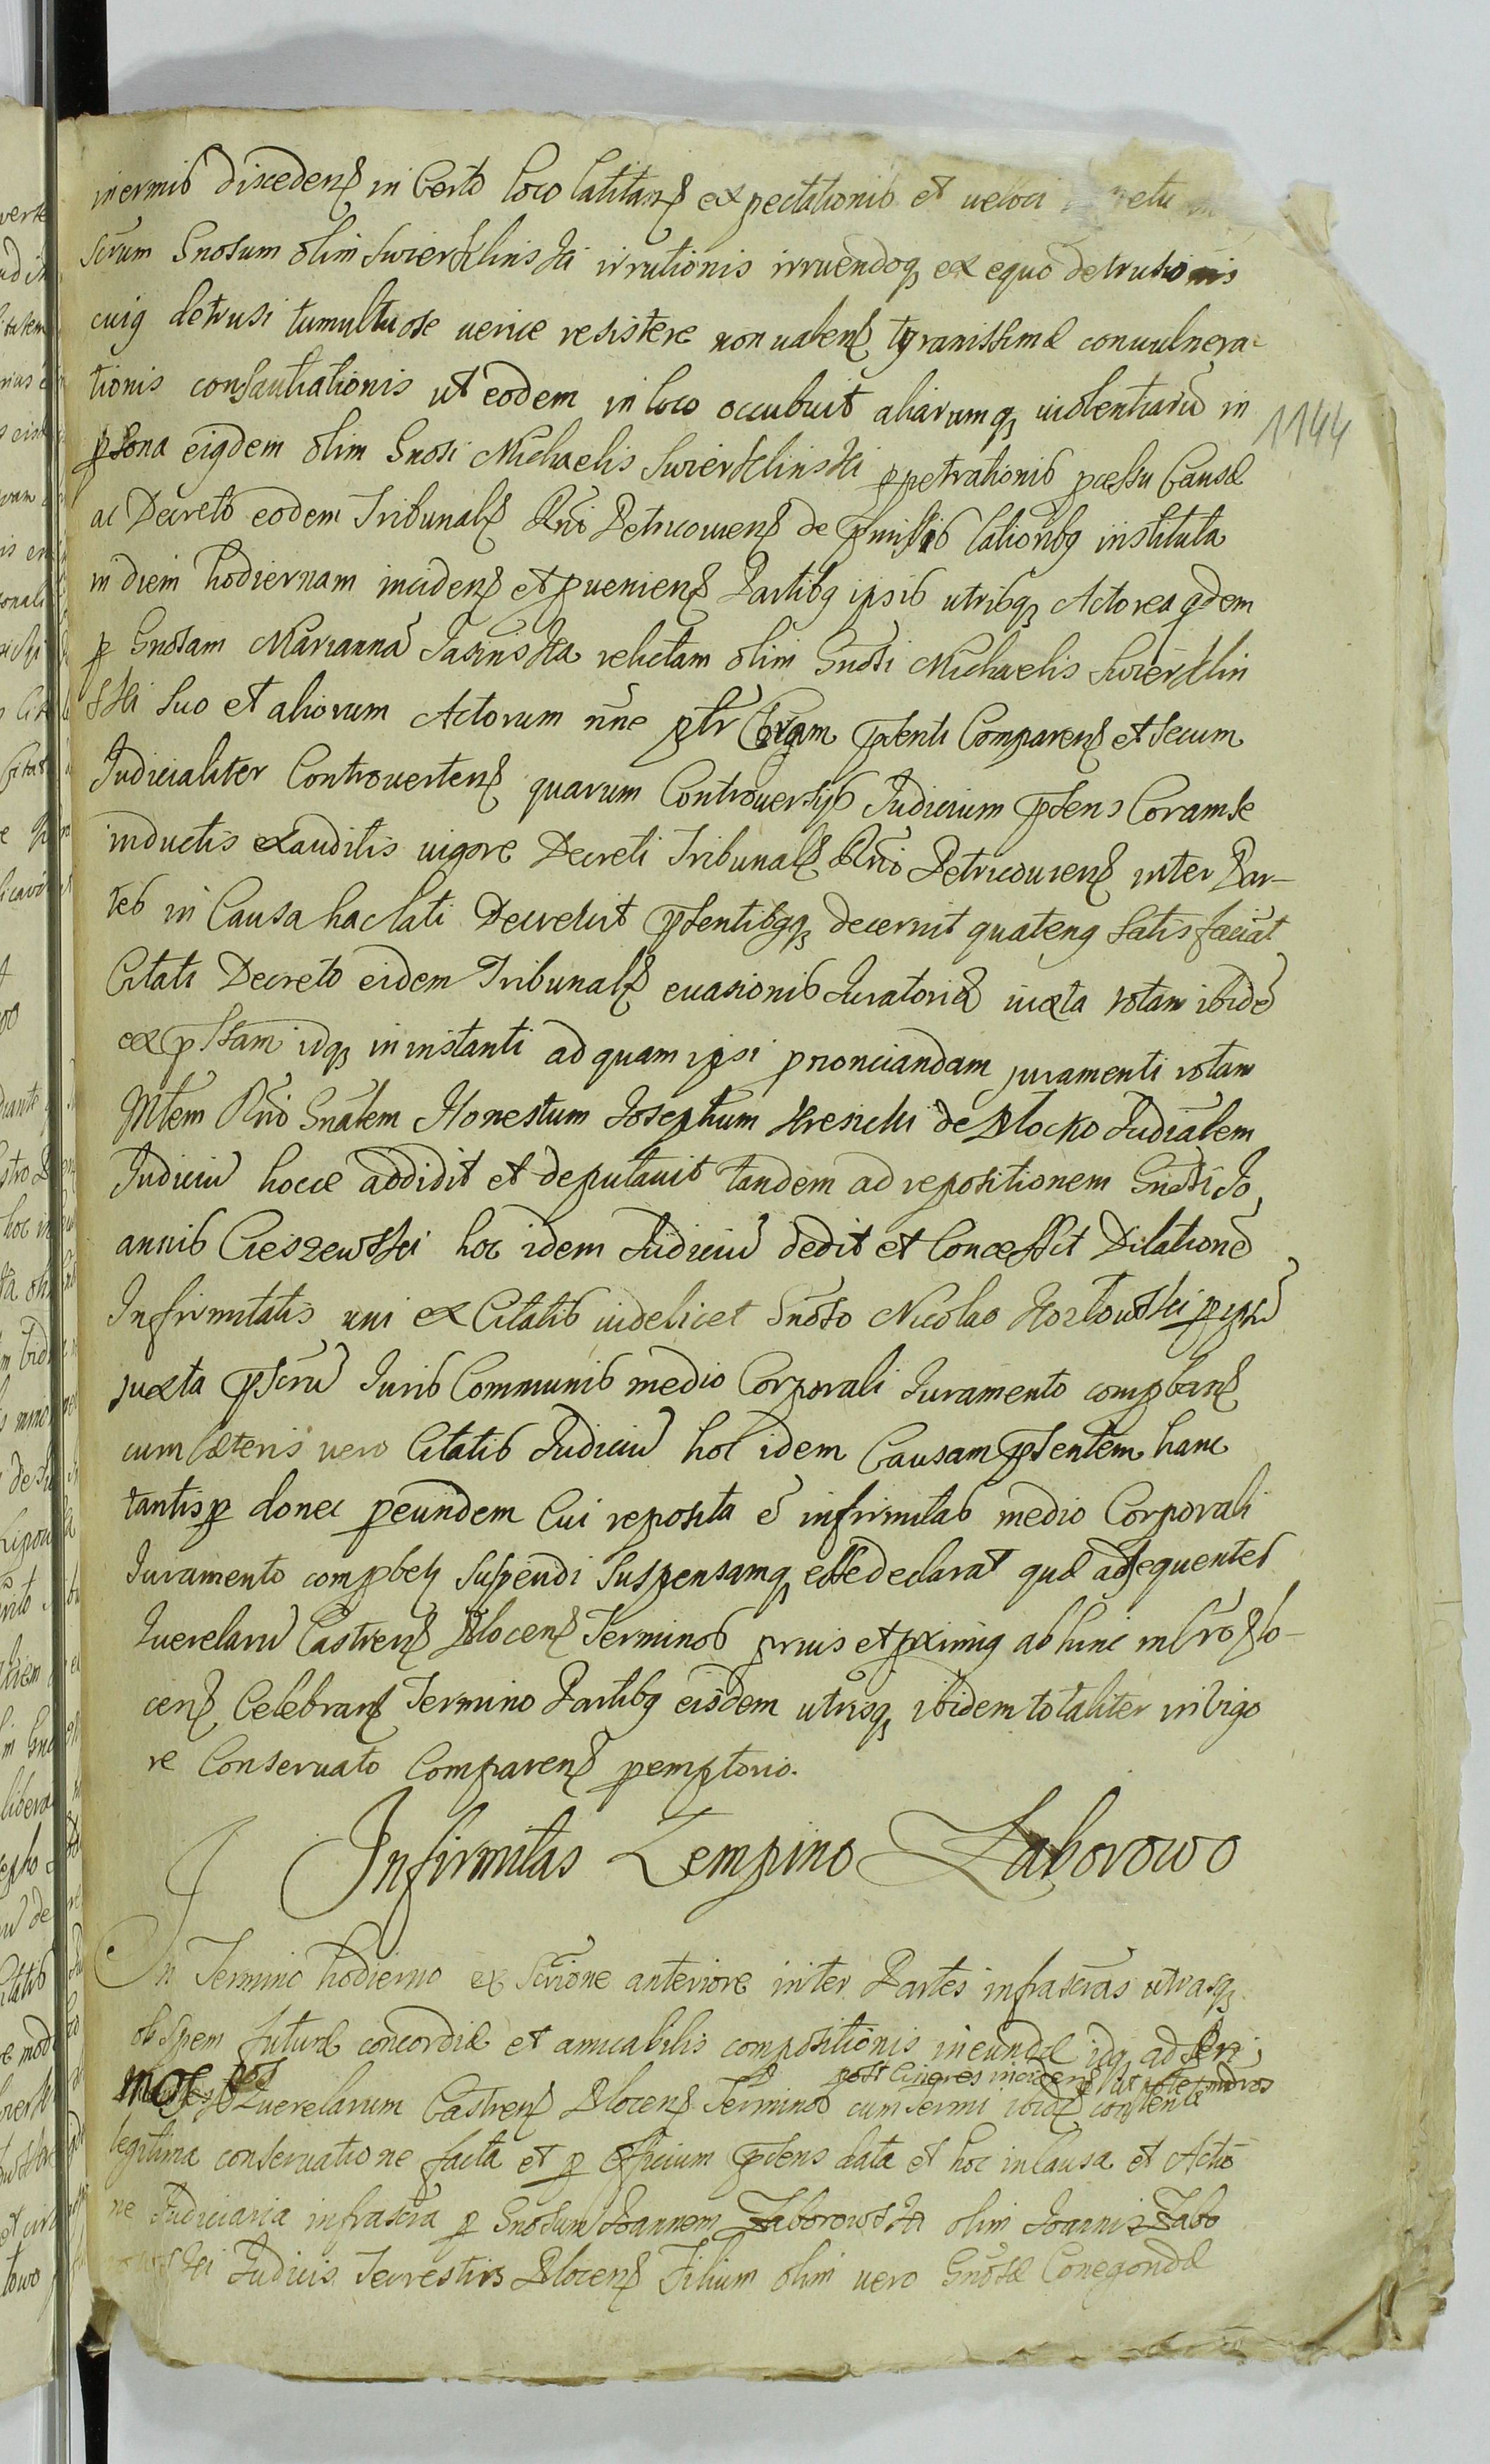 inermis discedens in Certo loco latitans expectationis et veloci
scrum Gnosum olim Swierklinski irrutionis irruendoq ex equo detrusionis
cuig detrusi tumultuose verice resistere non valens tyranissimæ convulnera-
tionis consautiationis ut eodem in loco occubuit aliarumq violentiarū in
psona eigdem olim Gnosi Michaelis Swierklinski ppetrationis pcessu Causæ
ac Decreto eodem Tribunals Rni Petricoviens de pmissis lationibg instituta
in diem hodiernam incidens et pveniens Partibg ipsis utribq Actorea qdem
p Gnosam Mariannā Jasinska relictam olim Gnosi Michaelis Swierklin
ski suo et aliorum Actorum nne pltr Coram psenti Comparens et secum
Judicialiter Controvertens quarum Controversijs Judicium psens Coram se
inductis exauditis vigore Decreti Tribunals Rni Petricoviens inter Par-
tes in Causa hac lati Decrevit psentibgq decernit quateng satisfaciat
Citati Decreto eidem Tribunals evasionis Juratoriæ iuxta rotam ibidē
ex pssam idq in instanti ad quam ipsi pronciandam juramenti rotam
Mtem Rni Gnalem Honestum Josephum Kresicki de Plocko Judialem
Judiciū hocce addidit et deputavit tandem ad repositionem Gnosi Jo
annis Cieszewski hoc idem Judiciū dedit et Concessit Dilationē
Infirmitatis uni ex Citatis videlicet Gnoso Nicolao Kozlowski p ipsū
juxta pscrū Juris Communis medio Corporali Juramento compbans
cum cæteris vero Citatis Judiciū hoc idem Causam psentem hanc
tantisp donec peundem Cui reposita ē infirmitas medio Corporali
Juramento compbetr suspendi suspensamq esse declarat quæ ad sequentes
Querelarū Castrens Plocens Terminos prius et pximig ab hinc in Cro Plo-
cens Celebrans Termino Partibg eisdem utrisq ibidem totaliter in vigo
re Conservato Comparens pemptorio.
Infirmitas Zempino Zaborowo
In Termino hodierno ex Scrione anteriore inter Partes infrascras utrasq
ob spem futuræ concordiæ et amicabilis compositionis ineundæ idq ad
post Cineres incidens
Querelarum Castrens Plocens Terminos cum Termi ibide
legitima conservatione facta et p Officium psens data et hoc in Causa et Actio
ne Judiciaria infrascra p Gnosum Joannem Zaborowski olim Joannis Zabo
rowski Judicis Terrestris Plocens Filium olim vero Gnosæ Conegondæ
1144